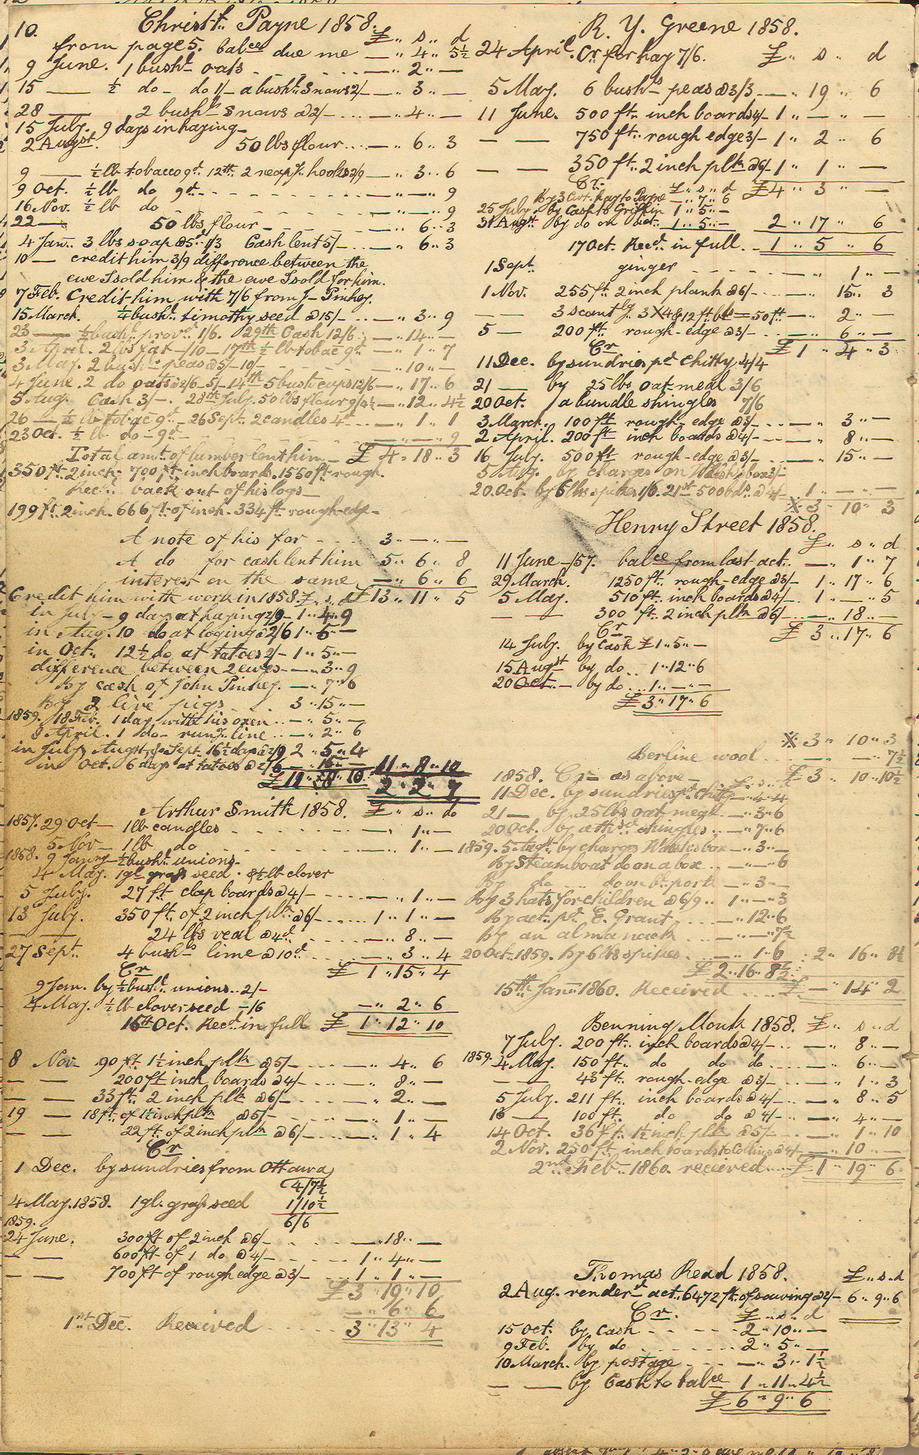 10. Christr. Payne 1858. £ „ s „ d
from page 5. balce due me — „ 4 „ 5½
9 June. 1 bushl oats - - - — „ 2 „ —
15 — ½ do - do 1/- a bushl. Snows 2/- — „ 3 „ —
28 — 2 bushl Snows @2/- — „ 4 „ —
15 July. 9 days in haying —
2 Augst. 50 lbs flour — „ 6 „ 3
9 — ½ lb tobacco 9d. 12th. 2 reapg. hooks 2/9 — „ 3 „ 6
9 Oct. ½ lb do 9d. - - - — „ — „ 9
16 Nov. ½ lb do - - - — „ — „ 9
22 — 50 lbs flour - - - — „ 6 „ 3
4 Jan. 3 lbs soap @5d. 1/3 Cash lent 5/- — „ 6 „ 3
10 — credit him 3/9 difference between the
ewe I sold him & the ewe I sold for him.
7 Feb. Credit him with 7/6 from J- Pinhey.
15 March. ¼ bushl. timothy seed @15/- — „ 3 „ 9
23 — ½ bushl. provr. 1/6. 29th Cash 12/6 — „ 14 „ —
3 April. 2 lbs fat -/10 — 17th ½ lb tobac 9d. — „ 1 „ 7
3 May. 2 bushl peas @5/- 10/- — „ 10 „ —
4 June. 2 do 5/- 14th 5 bust 12/6 — „ 17 „ 6
5 Aug. Cash 3/-. 28th July. 50 lbs flour 9/4½ — „ 12 „ 4½
26 — ½ lb tobac 9d. 26 Sept. 2 candles 4d. — „ 1 „ 1
23 Oct. ½ lb do - 9d. — „ — „ 9
Total amt. of lumber lent him £ 4 „ 18 „ 3
350 ft. 2 inch - 700 ft. inch boards. 1550 ft rough.
Recd. back out of his logs —
199 ft. 2 inch. 666 ft. of inch. 334 ft. rough edge —
A note of his for - - - 3 „ — „ —
A do for cash lent him 5 „ 6 „ 8
interest on the same — „ 6 „ 6
Credit him with work in 1858. £ „ s „ d £13 „ 11 „ 5
In July - 9 days at haying 2/9 1 „ 4 „ 9
in Aug. 10 do at loging @2/6 1 „ 5 „ —
in Oct. 12½ do at tatoes 2/- 1 „ 5 „ —
difference between 2 ewes — „ 3 „ 9
By cash of John Pinhey. — „ 7 „ 6
By 2 live pigs. 3 „ 15 „ —
1859. 18 Feb. 1 day with his oxen — „ 5 „ —
8 April. 1 do. rung. line — „ 2 „ 6
in July, Augst, & Sept. 16½ days @2/9 2 „ 5 „ 4
in Oct. 6 days at tatoes @2/6 — „ 15 „ — 11 „ 8 „ 10
£ 11 „ 8 „ 10 2 „ 2 „ 7
Arthur Smith 1858. £ „ s „ d
1857. 29 Oct — 1 lb candles - - - — „ 1 „ —
5 Nov — 1 lb do - - - — „ 1 „ —
1858. 9 Janry — ½ bushl. unions —
4 May. 1 gl grass seed. & ½ lb clover
5 July. 27 ft clap boards @4/- — „ 1 „ —
13 July. 350 ft. of 2 inch plk @6/- 1 „ 1 „ —
— — 24 lbs veal @4d. — „ 8 „ —
27 Sept. 4 bushl lime @10d. — „ 3 „ 4
Cr £ 1 „ 15 „ 4
9 Jan. by ½ bushl unions .. 2/-
4 May. ½ lb clover seed - /6 — „ 2 „ 6
16th Oct. Recd. in full £ 1 „ 12 „ 10
8 Nov. 90 ft. 1½ inch plk @5/- — „ 4 „ 6
— — 200 ft inch boards @4/- — „ 8 „ —
— — 33 ft. 2 inch plk @6/- — „ 2 „ —
19 — 18 ft. of 1½ inch plk @5/- — „ 1 „ —
— — 22 ft. of 2 inch plk @6/- — „ 1 „ 4
Cr
1 Dec. by sundries from Ottawa
4/7½
4 May. 1858. 1 gl. grass seed 1/10½
1859. 6/6
24 June. 300 ft of 2 inch @6/- — „ 18 „ —
— — 600 ft of 1 do @4/- 1 „ 4 „ —
— — 700 ft of rough edge @3/- 1 „ 1 „ —
£ 3 „ 19 „ 10
— „ 6 „ 6
1st Dec. Received - - - 3 „ 13 „ 4
R. Y. Greene 1858.
24 April. Cr. for hay 7/6. £ „ s „ d
5 May. 6 bushls peas @3/3 — „ 19 „ 6
11 June. 500 ft. inch boards 4/- 1 „ — „ —
— — 750 ft. rough edge 3/- 1 „ 2 „ 6
— — 350 ft. 2 inch plk @6/- 1 „ 1 „ —
Cr. £ „ s „ d £4 „ 3 „ —
By 3 Cwt. hay to Payne — „ 7 „ 6
25 July. By Cash to Griffin 1 „ 5 „ —
31 Augt. By do on 1 „ 5 „ — 2 „ 17 „ 6
17 Oct. Recd. in full. 1 „ 5 „ 6
1 Sept. ginger - - - — „ 1 „ —
1 Nov. 255 ft. 2 inch plank @6/- — „ 15 „ 3
— — 3 scantg. 3X4 & 12 ft. lh — 50 ft — „ 2 „ —
5 — 200 ft. rough-edge @3/- — „ 6 „ —
Cr £ 1 „ 4 „ 3
11 Dec. by sundries pr Chitty 4/4
21 — by 25 lbs oat meal 3/6
20 Oct. /a bundle shingles 7/6
3 March. 100 ft rough edge @3/- — „ 3 „ —
2 April. 200 ft inch boards @4/- — „ 8 „ —
16 July. 500 ft. rough-edge @3/- — „ 15 „ —
5 Aug. by charges on box 3/-
20 Oct. by 6 lbs spikes 1/6. 21st 500 bds. @4/- 1 „ — „ —
X 3 „ 10 „ 3
Henry Street 1858.
£ „ s „ d
11 June - /57. balce from last act. — „ 1 „ 7
29 March. 1250 ft. rough-edge @3/- 1 „ 17 „ 6
5 May. 510 ft. inch boards @4/- 1 „ — „ 5
— — 300 ft. 2 inch plk @6/- — „ 18 „ —
Cr £ 3 „ 17 „ 6
14 July. by Cash £ 1 „ 5 „ —
15 Augst by do .. 1 „ 12 „ 6
20 Oct — by do .. 1 „ — „ —
£ 3 „ 17 „ 6
X 3 „ 10 „ 3
Berline wool — 7½
1858. Cr — as above — £ 3 „ 10 „ 10½
11 Dec. by sundries pr Chitty — „ 4 „ 4
21 — by 25 lbs oat meal — „ 3 „ 6
20 Oct. by a thsd shingles — „ 7 „ 6
1859. 5 Augt. by charges box — „ 3 „ —
By Steamboat do on a box — „ — „ 6
By do do on bl. pork — „ 3 „ —
By 3 hats for children @6/9 1 „ — „ 3
By act. pd. E. Grant — „ 12 „ 6
By an almanack — „ — „ 7½
20 Oct. 1859. By 6 lbs spikes — „ 1 „ 6 : 2 „ 16 „ 8½
£ 2 „ 16 „ 8½
15th Jany 1860. Received £ — „ 14 „ 2
Benning Monk 1858. £ „ s „ d
7 July. 200 ft. inch boards @4/- — „ 8 „ —
1859. 4 May. 150 ft. do do do — „ 6 „ —
— — 43 ft. rough-edge @3/- — „ 1 „ 3
5 July. 211 ft. inch boards @4/- — „ 8 „ 5
18 — 100 ft. do do @4/- — „ 4 „ —
14 Oct. 36 ft. 1½ inch plk @5/- — „ 1 „ 10
2 Nov. 250 ft. inch boards to @4/- — „ 10 „ —
2nd Feb. 1860. received £ 1 „ 19 „ 6
Thomas Read 1858. £ „ s „ d
2 Aug. renderd act. 6472 ft. of sawing @2/- 6 „ 9 „ 6
Cr. £ „ s „ d
15 Oct. by Cash - - - 2 „ 10 „ —
9 Feb. by do - - - 2 „ 5 „ —
10 March. by postage - - - — „ 3 „ 1½
— — by Cash to balce 1 „ 11 „ 4½
£ 6 „ 9 „ 6